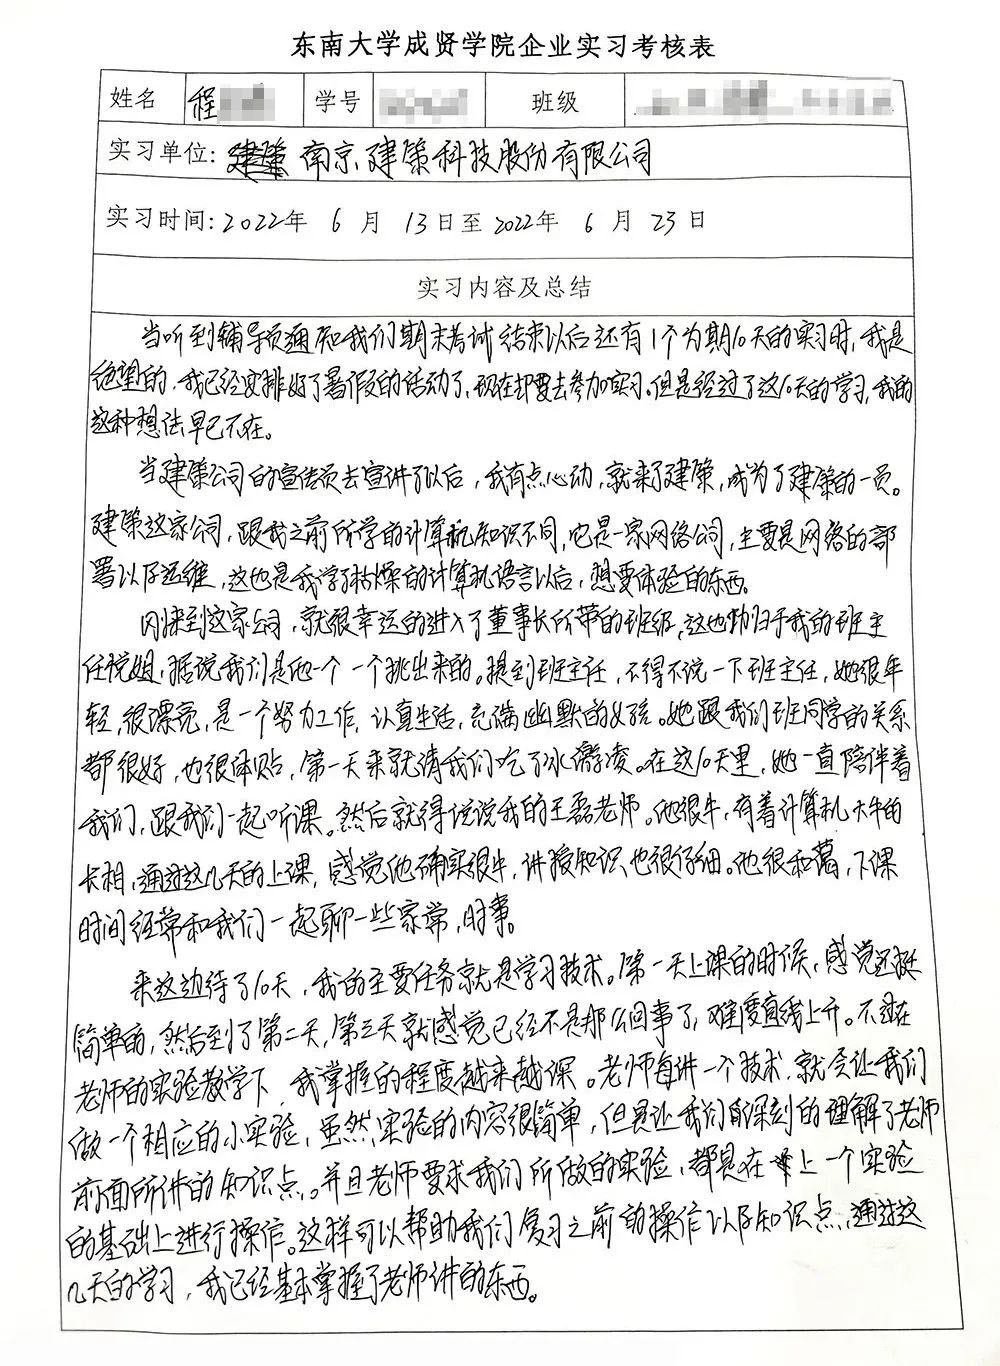 东南大学成贤学院企业实习考核表
姓名 程 学号 班级
实习单位: 南京建策科技股份有限公司
实习时间: 2022年 6 月 13日至 2022年 6 月 23日
实习内容及总结
当听到辅导员通知我们期末考试结束以后还有1个为期10天的实习时,我是
绝望的,我已经安排好了暑假的活动了,现在却要去参加实习。但是经过了这10天的学习,我的
这种想法早已不在。
当建策公司的宣传员去宣讲了以后,我有点心动,就来了建策,成为了建策的一员。
建策这家公司,跟我之前所学的计算机知识不同,它是一家网络公司,主要是网络的部
署以及运维,这也是我学了枯燥的计算机语言以后,想要体验的东西。
刚来到这家公司,就很幸运的进入了董事长所带的班级,这也归于我的班主
任悦姐,据说我们是他一个一个挑出来的。提到班主任,不得不说一下班主任,她很年
轻,很漂亮,是一个努力工作,认真生活,充满幽默的女孩。她跟我们班同学的关系
都很好,也很体贴,第一天来就请我们吃了冰激凌。在这10天里,她一直陪伴着
我们,跟我们一起听课。然后就得说说我的王磊老师。他很牛,有着计算机大牛的
长相,通过这几天的上课,感觉他确实很牛,讲授知识也很仔细。他很和蔼,下课
时间经常和我们一起聊一些家常,时事。
来这边待了10天,我的主要任务就是学习技术。第一天上课的时候,感觉还挺
简单的,然后到了第二天,第三天就感觉已经不是那么回事了,难度直线上升。不过在
老师的实验教学下,我掌握的程度越来越深。老师每讲一个技术,就会让我们
做一个相应的小实验,虽然实验的内容很简单,但是让我们深刻的理解了老师
前面所讲的知识点。并且老师要求我们所做的实验,都是在上一个实验
的基础上进行操作。这样可以帮助我们复习之前的操作以及知识点,通过这
几天的学习,我已经基本掌握了老师讲的东西。